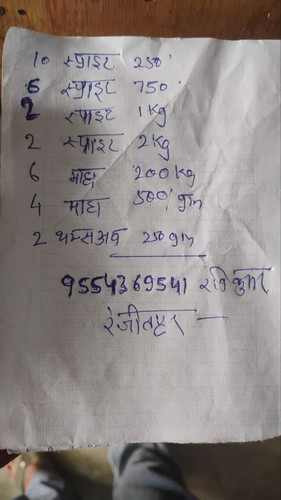 10 स्प्राइट 250'
6 स्प्राइट 750'
2 स्प्राइट 1 Kg
2 स्प्राइट 2 Kg
6 माधा 200 Kg
4 माधा 500' gm
2 थम्सअव 250 gm
9554369541 रवि कुमार